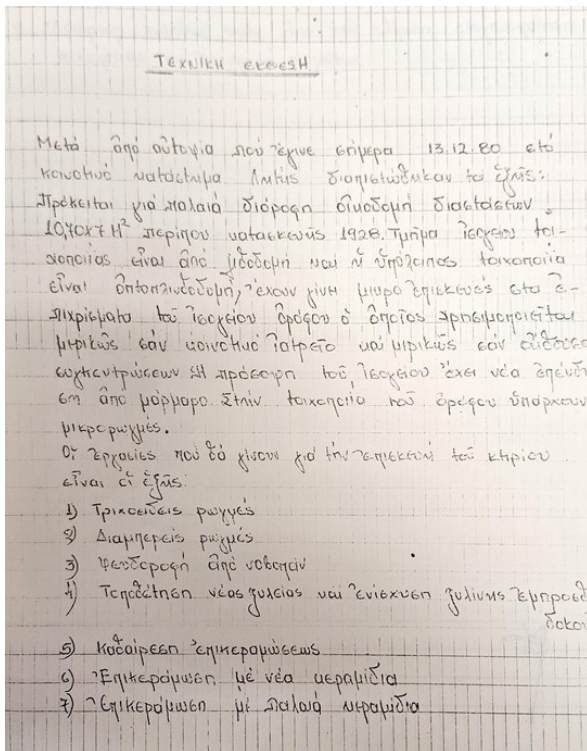 ΤΕΧΝΙΚΗ ΕΚΘΕΣΗ
Μετά ἀπό αὐτοψία πού ἔγινε σήμερα 13.12.80 στό
κοινοτικό κατάστημα Λητής διαπιστώθηκαν τά ἑξῆς:
Πρόκειται γιά παλαιά διόροφη οἰκοδομή διαστάσεων
10,70x7 Μ² περίπου κατασκευῆς 1928. Τμῆμα ἰσογείου τοι-
χοποιίας εἶναι ἀπό ὠμοδομή καί ἡ ὑπόλοιπος τοιχοποιία
εἶναι ὀπτοπλινθοδομή, ἔχουν γίνη μικρο ἐπισκευές στα ἐ-
πιχρίσματα τοῦ ἰσογείου ὀρόφου ὁ ὁποῖος χρησιμοποιεῖται
μερικῶς σάν κοινοτικό ἰατρεῖο καί μερικῶς σάν αἴθουσα
συγκεντρώσεων. Ἡ πρόσοψη τοῦ ἰσογείου ἔχει νέα ἐπένδυ
ση ἀπό μάρμαρο. Στήν τοιχοποιία τοῦ ὀρόφου ὑπάρχουν
μικρορωγμές.
Οἱ ἐργασίες πού θά γίνουν γιά τήν ἐπισκευή τοῦ κτηρίου
εἶναι οἱ ἑξῆς:
1) Τριχοειδεις ρωγμές
2) Διαμπερείς ρωγμές
3) Ψευδοροφή ἀπό νοβοπάν
4) Τοποθέτηση νέας ξυλείας καί ἐνίσχυση ξυλίνης ἐμπροσθ
δοκού
5) Καθαίρεση ἐπικεραμώσεως
6) Ἐπικεράμωση μέ νέα κεραμίδια
7) Ἐπικεράμωση μέ παλαιά κεραμίδια